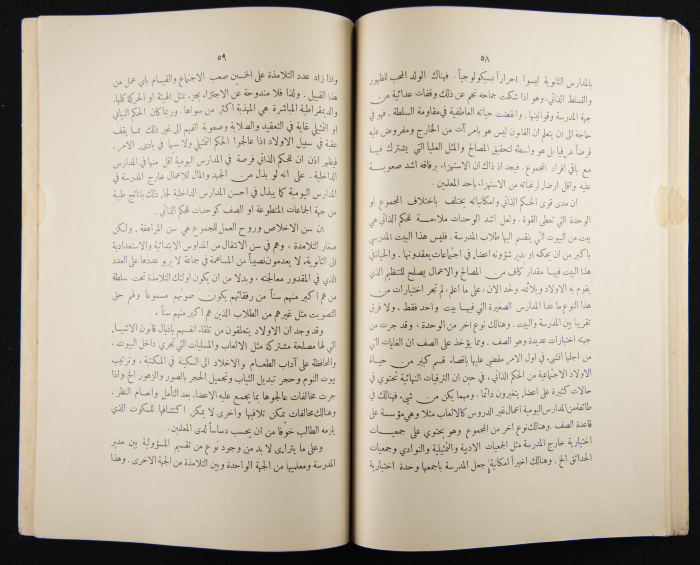 ٥٨
بالمدارس الثانوية ليسوا احراراً بسيكولوجياً. فهناك الولد المحب للظهور
والتسلط الذاتي. وهو اذا شكمت جماحه نجم عن ذلك وقفات عدائية من
جهة المدرسة وقوانينها. وانفضت حياته العاطفية في مقاومة السلطة. فهو في
حاجة الى ان يتعلم ان القانون ليس هو بأمر آت من الخارج ومفروض عليه
فرضاً عرفياً بل هو واسطة لتحقيق المصالح والمثل العليا التي يشترك فيها
مع باقي افراد المجموع. فيجد اذ ذاك ان الاستهزاء برفاقه اشد صعوبة
عليه واقل ارضاء لرغباته من الاستهزاء باحد المعلمين.
ان مدى قوى الحكم الذاتي وامكانياته تختلف باختلاف المجموع او
الوحدة التي تعطى القوة. ولعل اشد الوحدات ملاءمة للحكم الذاتي هي
بيت من البيوت التي ينقسم اليها طلاب المدرسة. فليس هذا البيت المدرسي
باكبر من ان يحكمه او يدير شؤونه اعضاء في اجتماعات يعقدونها. والحياة في
هذا البيت فيها مقدار كاف من المصالح والاعمال يصلح للتنظيم الذي
يقوم به الاولاد ويلائمه. ولحد الآن، على ما اعلم، لم تجر اختبارات من
هذا النوع ما عدا المدارس الصغيرة التي فيها بيت واحد فقط، ولا فرق
تقريباً بين المدرسة والبيت. وهنالك نوع آخر من الوحدة، وقد جرت من
جهته اختبارات عديدة وهو الصف. ومما يؤخذ على الصف ان الغايات التي
من اجلها انشىء في اول الامر مقضي عليها باقصاء قسم كبير من حياة
الاولاد الاجتماعية من الحكم الذاتي، في حين ان الترقيات النهائية تحتوي في
حالات كثيرة على اعضاء يتغيرون دائماً. ومهما يكن من شيء، فهنالك في
طائفة من المدارس اليومية اعمال غير الدروس كالالعاب مثلا وهي مؤسسة على
قاعدة الصف. وهنالك نوع آخر من المجموع وهو يحتوي على جمعيات
اختيارية خارج المدرسة مثل الجمعيات الادبية والتمثيلية والنوادي وجمعيات
الحدائق الخ. وهنالك اخيراً امكانية جعل المدرسة باجمعها وحدة اختيارية
٥٩
واذا زاد عدد التلامذة على الخمسين صعب الاجتماع والقيام باي عمل من
هذا القبيل. ولذا فلا مندوحة عن الاجتزاء بجزء يمثل الهيئة او الحركة كلها.
والديمقراطية المباشرة هي المهذبة اكثر من سواها. وربما كان الحكم النيابي
او التمثيلي غاية في التعقيد والصلابة وصعوبة الفهم الى غير ذلك مما يقف
عقبة في سبيل الاولاد اذا عالجوا الحكم التمثيلي ولا سيما في بادىء الامر.
فيظهر اذن ان للحكم الذاتي فرصة في المدارس اليومية اقل منها في المدارس
الداخلية. على انه لو بذل من الجهد والمال للاعمال خارج المدرسة في
المدارس اليومية كما يبذل في احسن المدارس الداخلية لجاء ذلك بنتائج طيبة
من جهة الجماعات المتطوعة او الصف كوحدات للحكم الذاتي.
ان سن الاخلاص وروح العمل للمجموع هي سن المراهقة. ولكن
صغار التلامذة، وهم في سن الانتقال من المدارس الابتدائية والاستعدادية
الى الثانوية، لا يعدمون نصيباً من المساهمة في جماعة لا يربو عددها على العدد
الذي في المقدور معالجته. وبدلا من ان يكون اولئك التلامذة تحت سلطة
من هم اكبر منهم سناً من رفقائهم يكون صوتهم مسموعاً ولهم حق
التصويت مثل غيرهم من الطلاب الذين هم اكبر منهم سناً.
وقد وجد ان الاولاد يتعلقون من تلقاء انفسهم باذيال قانون الاشياء
التي لها مصلحة مشتركة مثل الالعاب والمسليات التي تجري داخل البيوت،
والمحافظة على آداب الطعام والاخلاد الى السكينة في المكتبة، وترتيب
بيوت النوم وحجر تبديل الثياب وتجميل الحجر بالصور والزهور الخ. واذا
جرت مخالفات عالجوها بما يجمع عليه الاعضاء بعد التأمل وانعام النظر.
وهنالك مخالفات يمكن تلافيها واخرى لا يمكن اكتشافها للسكوت الذي
يلزمه الطالب خوفا من ان يحسب دساساً لدى المعلمين.
وعلى ما يتراءى لا بد من وجود نوع من تقسيم المسؤولية بين مدير
المدرسة ومعلميها من الجهة الواحدة وبين التلامذة من الجهة الاخرى. وهذا